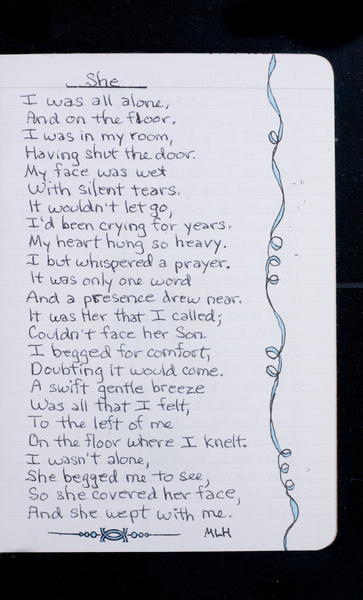 She
I was all alone,
And on the floor.
I was in my room,
Having shut the door.
My face was wet
With silent tears.
It wouldn't let go,
I'd been crying for years.
My heart hung so heavy.
I but whispered a prayer.
It was only one word
And a presence drew near.
It was Her that I called;
Couldn't face her Son.
I begged for comfort,
Doubting it would come.
A swift gentle breeze
Was all that I felt,
To the left of me
On the floor where I knelt.
I wasn't alone,
She begged me to see,
So she covered her face,
And she wept with me.
MLH